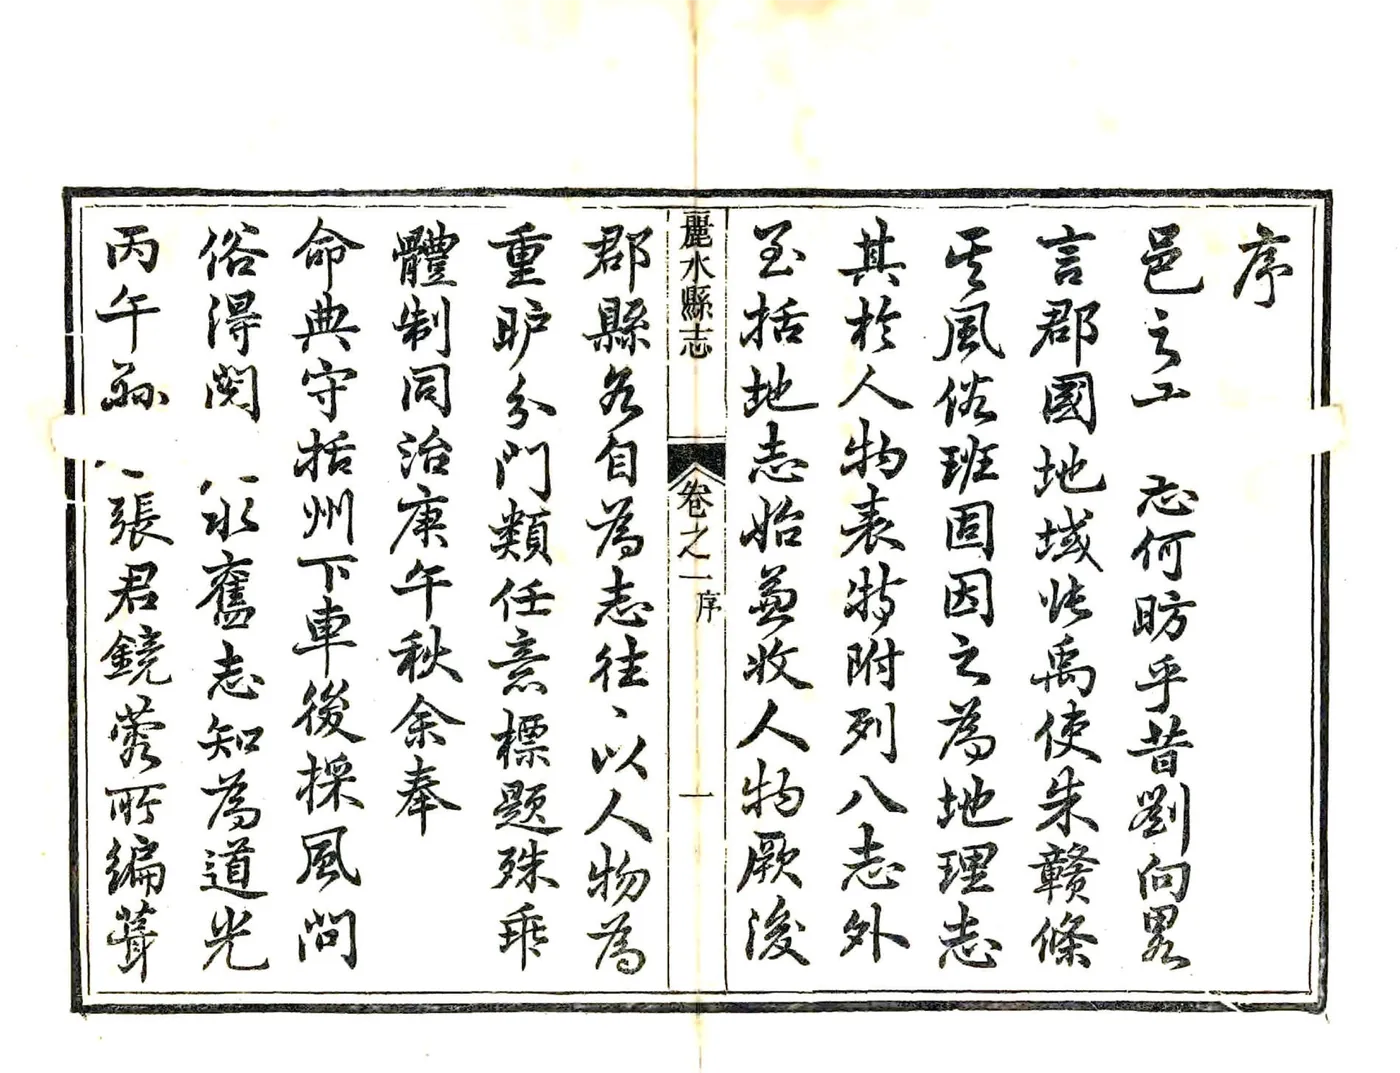 序
邑之 志何昉乎昔劉向畧
言郡國地域张禹使朱贛條
其風俗班固因之為地理志
其於人物表特附列八志外
至括地志始兼收人物厥後
麗水縣志
卷之一
序
一
郡縣各自為志往〻以人物為
重眎分門類任意標題殊乖
體制同治庚午秋余奉
命典守括州下車後採風問
俗得閱 水舊志知為道光
丙午 張君鏡蓉所編葺